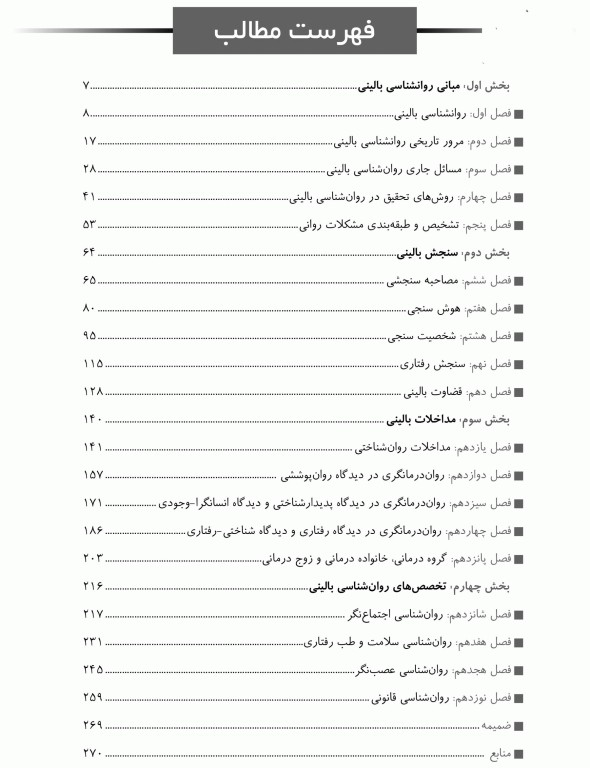 فهرست مطالب
بخش اول، مبانی روانشناسی بالینی ۷
فصل اول: روانشناسی بالینی ۸
فصل دوم: مرور تاریخی روانشناسی بالینی ۱۷
فصل سوم: مسائل جاری روان‌شناسی بالینی ۲۸
فصل چهارم: روش‌های تحقیق در روان‌شناسی بالینی ۴۱
فصل پنجم: تشخیص و طبقه‌بندی مشکلات روانی ۵۳
بخش دوم، سنجش بالینی ۶۴
فصل ششم: مصاحبه سنجشی ۶۵
فصل هفتم: هوش سنجی ۸۰
فصل هشتم: شخصیت سنجی ۹۵
فصل نهم: سنجش رفتاری ۱۱۵
فصل دهم: قضاوت بالینی ۱۲۸
بخش سوم، مداخلات بالینی ۱۴۰
فصل یازدهم: مداخلات روان‌شناختی ۱۴۱
فصل دوازدهم: روان‌درمانگری در دیدگاه روان‌پوششی ۱۵۷
فصل سیزدهم: روان‌درمانگری در دیدگاه پدیدارشناختی و دیدگاه انسانگرا-وجودی ۱۷۱
فصل چهاردهم: روان‌درمانگری در دیدگاه رفتاری و دیدگاه شناختی-رفتاری ۱۸۶
فصل پانزدهم: گروه درمانی، خانواده درمانی و زوج درمانی ۲۰۳
بخش چهارم، تخصص‌های روان‌شناسی بالینی ۲۱۶
فصل شانزدهم: روان‌شناسی اجتماع‌نگر ۲۱۷
فصل هفدهم: روان‌شناسی سلامت و طب رفتاری ۲۳۱
فصل هجدهم: روان‌شناسی عصب‌نگر ۲۴۵
فصل نوزدهم: روان‌شناسی قانونی ۲۵۹
ضمیمه ۲۶۹
منابع ۲۷۰